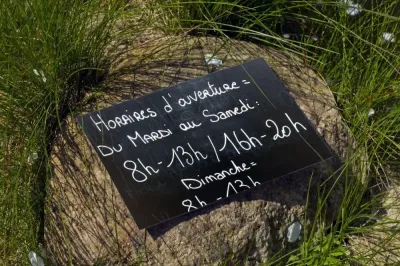 Horaires d'ouverture =
Du Mardi au Samedi :
8h-13h / 16h-20h
Dimanche =
8h - 13h